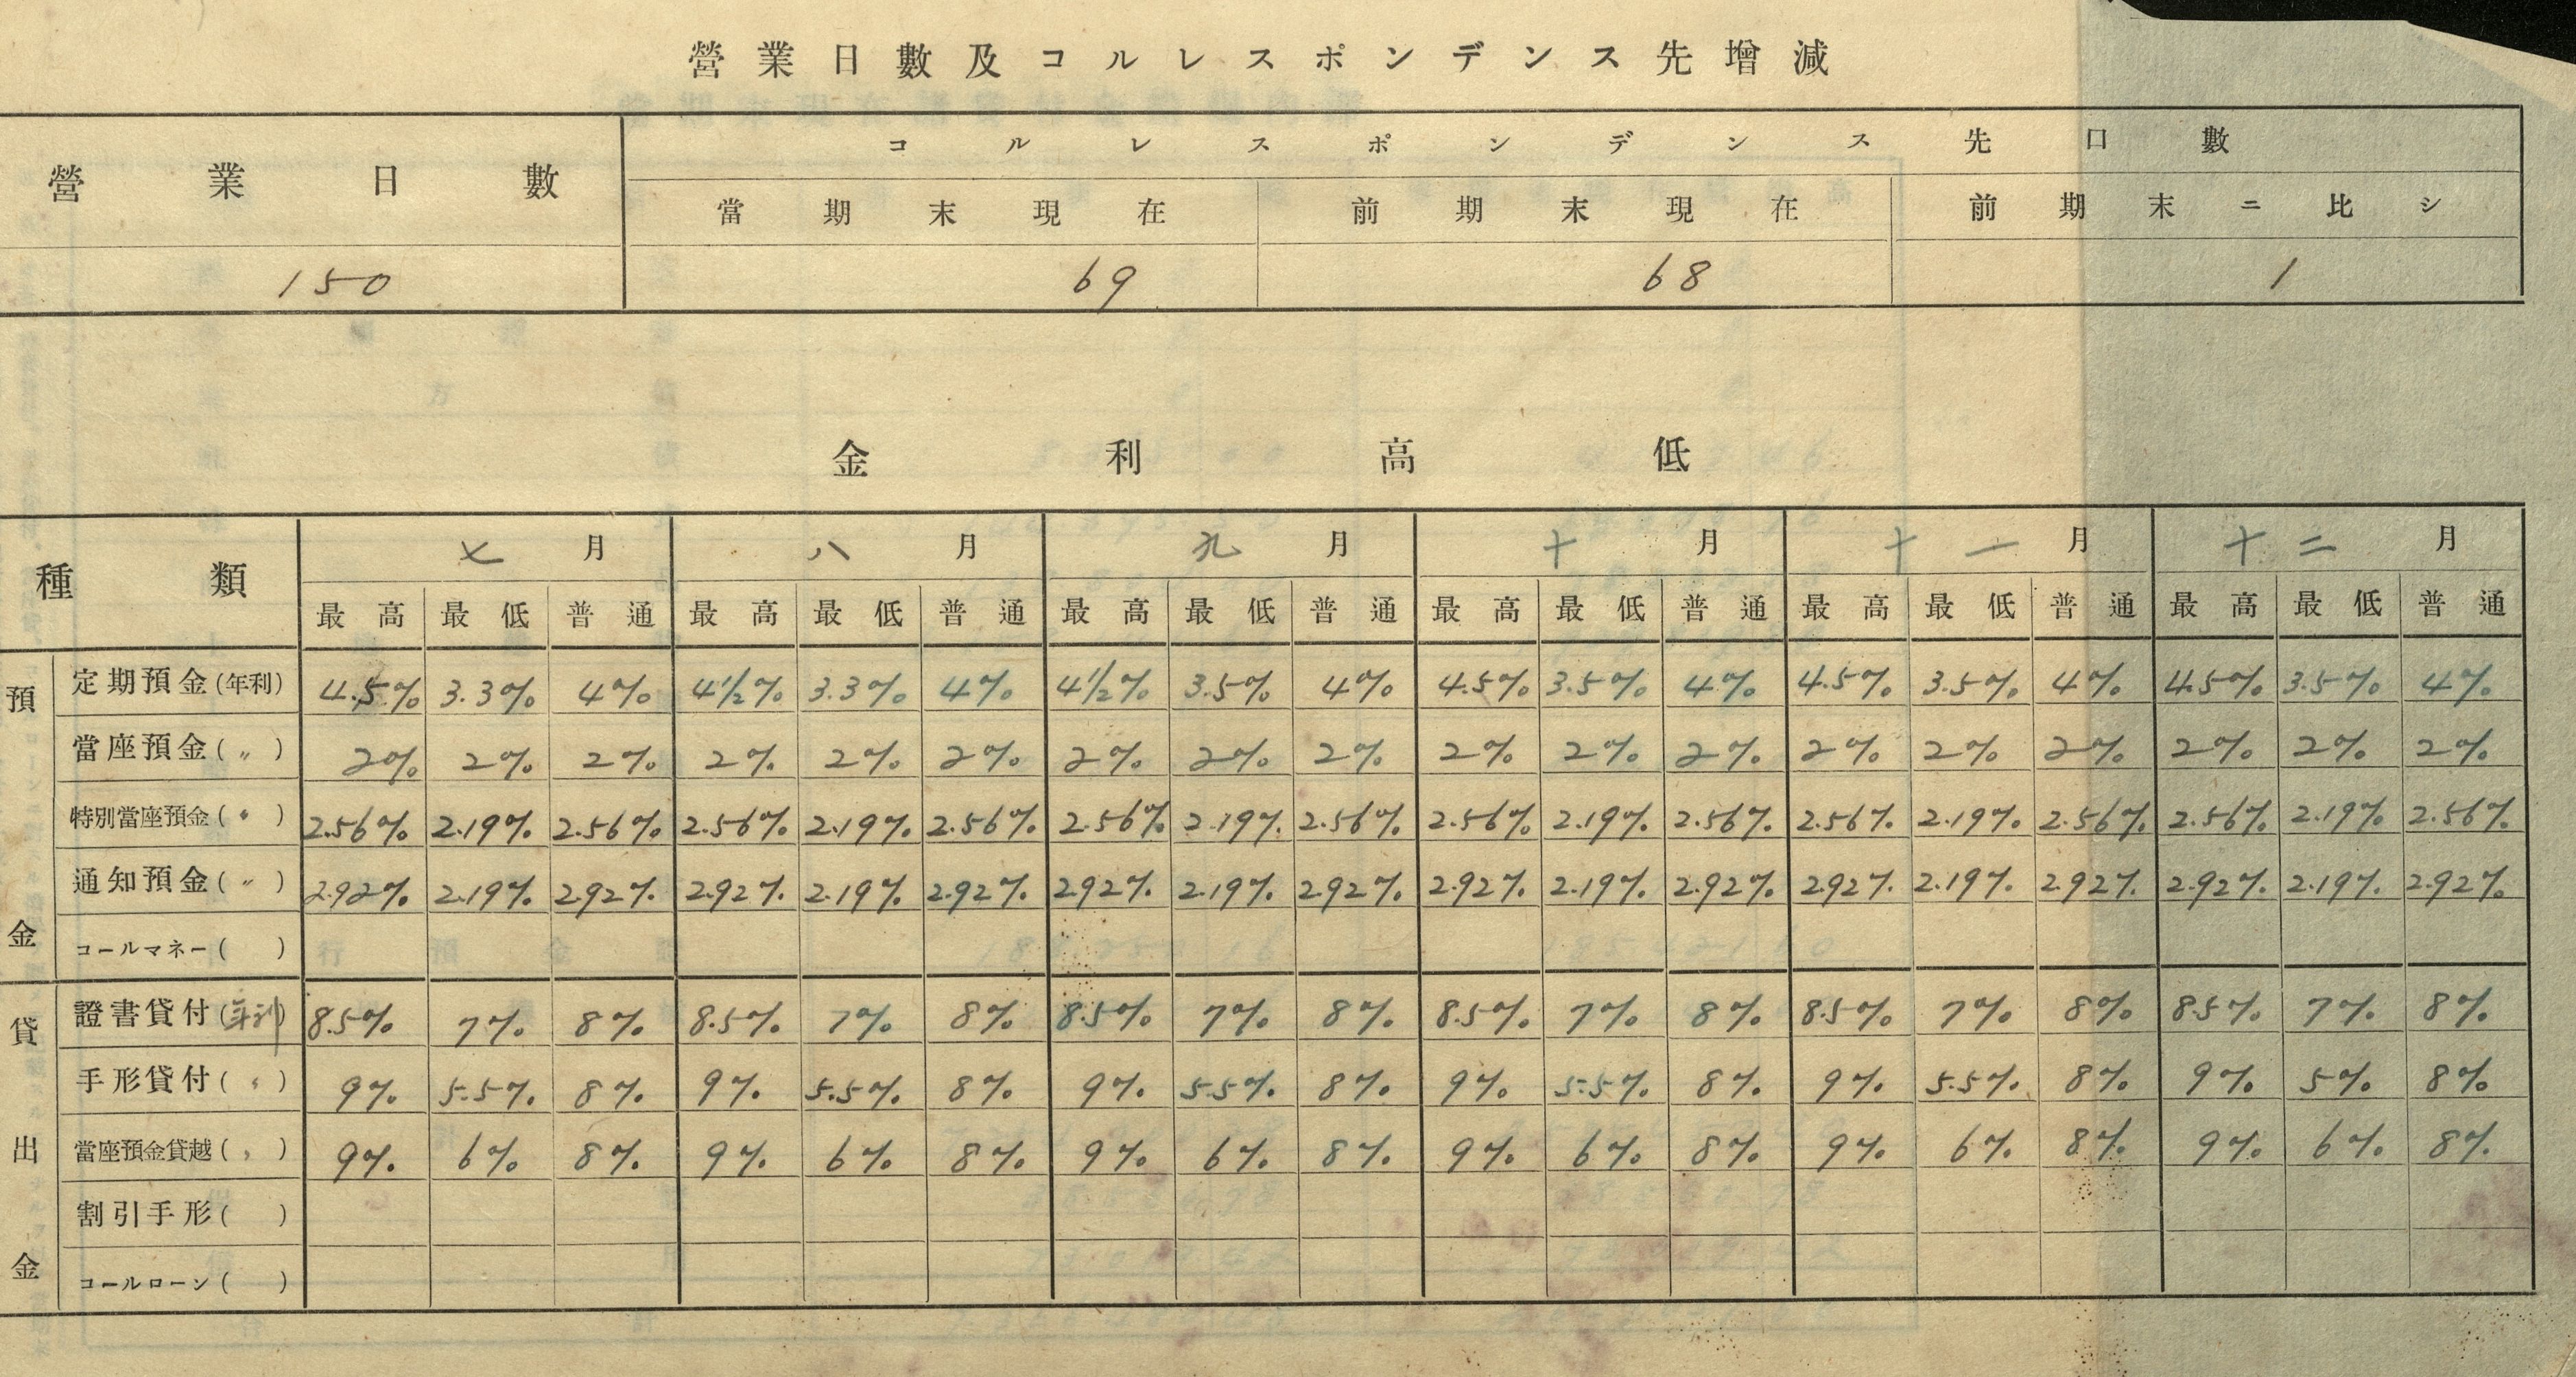 營業日數及コルレスポンデンス先增減
營業日數 コルレスポンデンス先口數
當期末現在 前期末現在 前期末ニ比シ
150 69 68 1
金利高低
種類 七月 八月 九月 十月 十一月 十二月
最高 最低 普通 最高 最低 普通 最高 最低 普通 最高 最低 普通 最高 最低 普通 最高 最低 普通
預金
定期預金(年利) 4.5% 3.3% 4% 4½% 3.3% 4% 4½% 3.5% 4% 4.5% 3.5% 4% 4.5% 3.5% 4% 4.5% 3.5% 4%
當座預金(〃) 2% 2% 2% 2% 2% 2% 2% 2% 2% 2% 2% 2% 2% 2% 2% 2% 2% 2%
特別當座預金(〃) 2.56% 2.19% 2.56% 2.56% 2.19% 2.56% 2.56% 2.19% 2.56% 2.56% 2.19% 2.56% 2.56% 2.19% 2.56% 2.56% 2.19% 2.56%
通知預金(〃) 2.92% 2.19% 2.92% 2.92% 2.19% 2.92% 2.92% 2.19% 2.92% 2.92% 2.19% 2.92% 2.92% 2.19% 2.92% 2.92% 2.19% 2.92%
コールマネー( )
貸出金
證書貸付(年利) 8.5% 7% 8% 8.5% 7% 8% 8.5% 7% 8% 8.5% 7% 8% 8.5% 7% 8% 8.5% 7% 8%
手形貸付(〃) 9% 5.5% 8% 9% 5.5% 8% 9% 5.5% 8% 9% 5.5% 8% 9% 5.5% 8% 9% 5% 8%
當座預金貸越(〃) 9% 6% 8% 9% 6% 8% 9% 6% 8% 9% 6% 8% 9% 6% 8% 9% 6% 8%
割引手形( )
コールローン( )